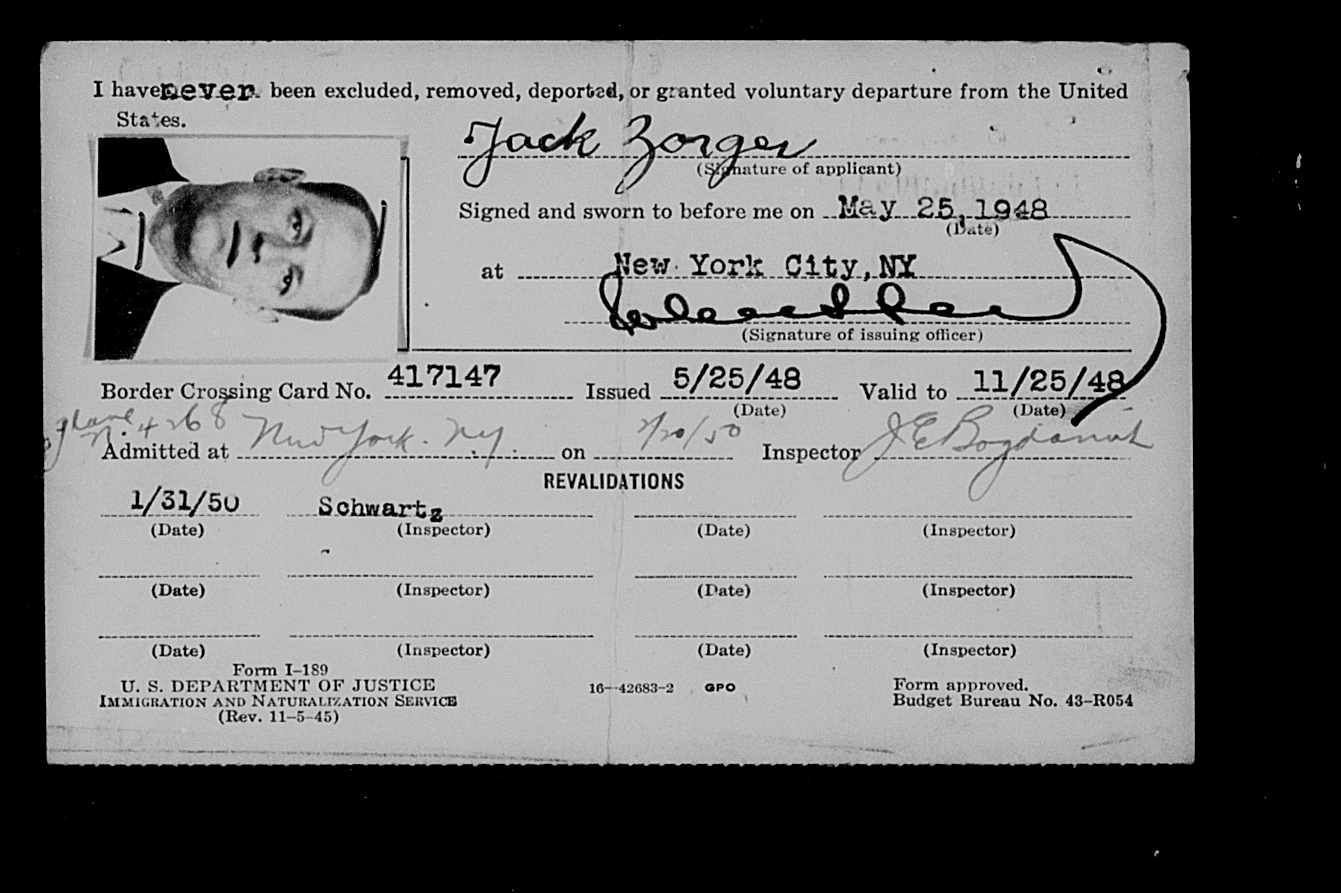 I have never been excluded, removed, deported, or granted voluntary departure from the United
States.
Jack Zorger
(Signature of applicant)
Signed and sworn to before me on May 25, 1948
(Date)
at New York City, NY
(Signature of issuing officer)
Border Crossing Card No. 417147 Issued 5/25/48 Valid to 11/25/48
(Date) (Date)
4268
Admitted at New York. NY. on /20/50 Inspector J E
REVALIDATIONS
1/31/50 Schwartz
(Date) (Inspector) (Date) (Inspector)
(Date) (Inspector) (Date) (Inspector)
(Date) (Inspector) (Date) (Inspector)
Form I-189
U. S. DEPARTMENT OF JUSTICE
IMMIGRATION AND NATURALIZATION SERVICE
(Rev. 11-5-45)
16—42683-2 GPO
Form approved.
Budget Bureau No. 43-R054